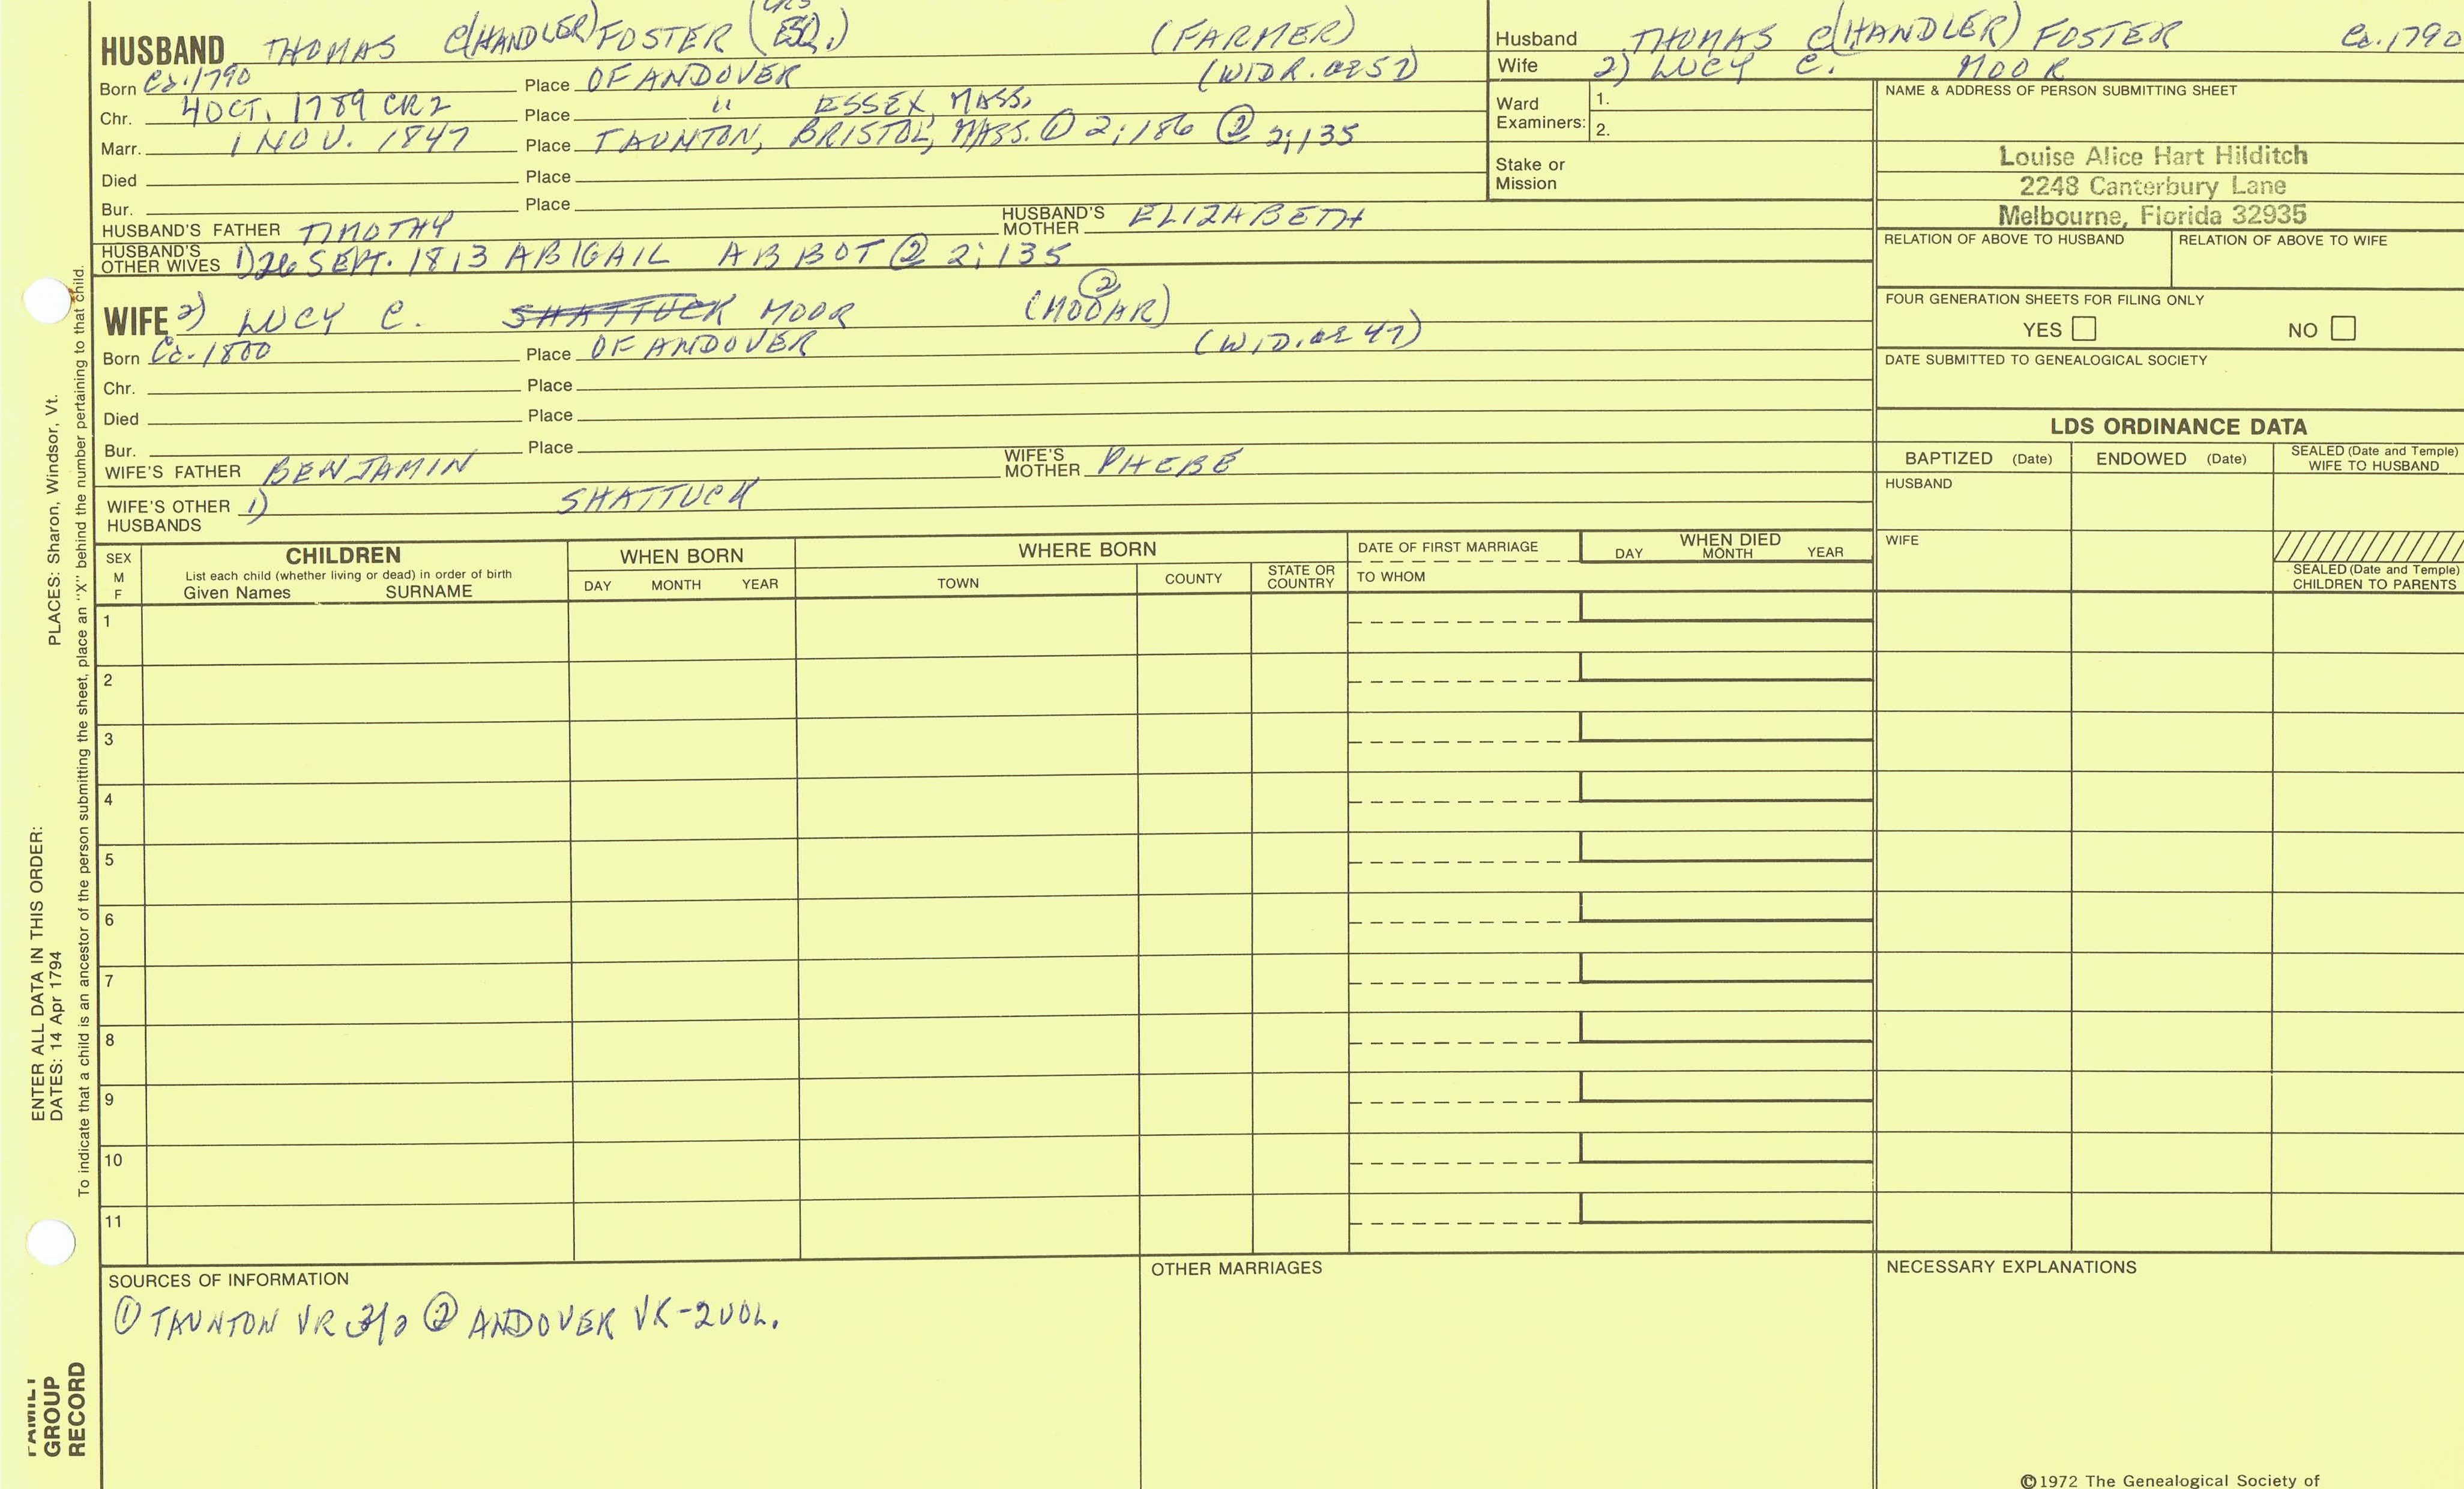 HUSBAND THOMAS C(HANDLER) FOSTER (ESQ.) (FARMER)
Born Ca. 1790 Place OF ANDOVER (WIDR. 57)
Chr. 4 OCT. 1789 CR2 Place " ESSEX, MASS.
Marr. 1 NOV. 1847 Place TAUNTON, BRISTOL, MASS. ① 2;186 ② 2;135
Died Place
Bur. Place
HUSBAND'S FATHER TIMOTHY HUSBAND'S MOTHER ELIZABETH
HUSBAND'S OTHER WIVES 1) 26 SEPT. 1813 ABIGAIL ABBOT ② 2;135
WIFE 2) LUCY C. SHATTUCK MOOR (MOOAR) ②
Born Ca. 1800 Place OF ANDOVER (WID. 47)
Chr. Place
Died Place
Bur. Place
WIFE'S FATHER BENJAMIN WIFE'S MOTHER PHEBE
WIFE'S OTHER HUSBANDS 1) SHATTUCK
Husband THOMAS C(HANDLER) FOSTER Ca. 1790
Wife 2) LUCY C. MOOR
Ward Examiners: 1.
2.
Stake or Mission
NAME & ADDRESS OF PERSON SUBMITTING SHEET
Louise Alice Hart Hilditch
2248 Canterbury Lane
Melbourne, Florida 32935
RELATION OF ABOVE TO HUSBAND RELATION OF ABOVE TO WIFE
FOUR GENERATION SHEETS FOR FILING ONLY
YES NO
DATE SUBMITTED TO GENEALOGICAL SOCIETY
LDS ORDINANCE DATA
BAPTIZED (Date) ENDOWED (Date) SEALED (Date and Temple) WIFE TO HUSBAND
HUSBAND
WIFE
SEALED (Date and Temple) CHILDREN TO PARENTS
SEX M F
CHILDREN
List each child (whether living or dead) in order of birth
Given Names SURNAME
WHEN BORN
DAY MONTH YEAR
WHERE BORN
TOWN COUNTY STATE OR COUNTRY
DATE OF FIRST MARRIAGE
TO WHOM
WHEN DIED
DAY MONTH YEAR
1
2
3
4
5
6
7
8
9
10
11
SOURCES OF INFORMATION
① TAUNTON VR ② ANDOVER VR-2VOL.
OTHER MARRIAGES
NECESSARY EXPLANATIONS
©1972 The Genealogical Society of
PLACES: Sharon, Windsor, Vt.
ENTER ALL DATA IN THIS ORDER:
DATES: 14 Apr 1794
To indicate that a child is an ancestor of the person submitting the sheet, place an "X" behind the number pertaining to that child.
FAMILY
GROUP
RECORD